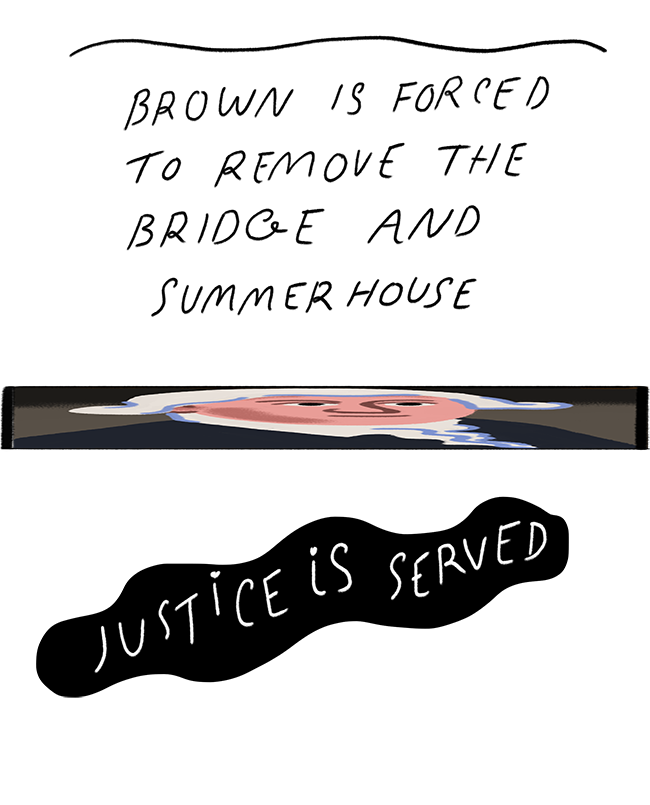 BROWN IS FORCED
TO REMOVE THE
BRIDGE AND
SUMMERHOUSE
JUSTICE IS SERVED